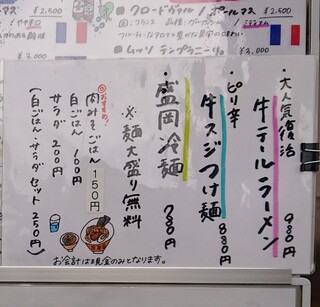 ¥2,500
¥3,000
■クロードヴァル / ポールマス
¥2,500
■ムッソ テンプラニーリョ
¥3,000
・大人気復活
牛テールラーメン
980円
・ピリ辛
牛スジつけ麺
880円
盛岡冷麺
780円
※麺大盛り無料
おすすめ!
肉みそごはん 150円
白ごはん 100円
サラダ 200円
(白ごはん・サラダセット 250円)
お会計は現金のみとなります。